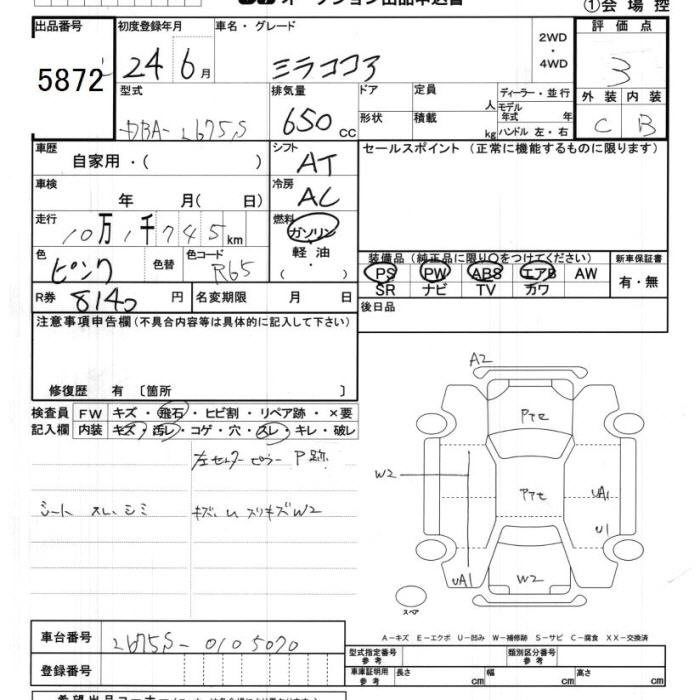 オークション出品申込書
①会場控
出品番号 初度登録年月 車名・グレード 2WD・4WD 評価点
5872 24年6月 ミラココア 3
型式 排気量 ドア 定員 人 ディーラー・並行 外装 内装
モデル年式 年
DBA-L675S 650cc 形状 積載 kg ハンドル 左・右 C B
車歴 自家用・( ) シフト AT セールスポイント(正常に機能するものに限ります)
車検 年 月(日) 冷房 AC
走行 10万1千745km 燃料 ガソリン
軽油
・( )
色 ピンク 色替 色コード R65
装備品(純正品に限り○をつけてください) 新車保証書
PS PW ABS エアB AW 有・無
SR ナビ TV カワ
R券 8140円 名変期限 月 日 後日品
注意事項申告欄(不具合内容等は具体的に記入して下さい)
修復歴 有 〔箇所 〕
検査員 FW キズ・飛石・ヒビ割・リペア跡・×要
記入欄 内装 キズ・汚レ・コゲ・穴・スレ・キレ・破レ
左センターピラー P跡
シート スレ、シミ キズ、U スリキズW2
A2
Pテセ
W2
Pテセ
UA1
U1
UA1
W2
スペア
A-キズ E-エクボ U-凹み W-補修跡 S-サビ C-腐食 XX-交換済
車台番号 L675S-0105070
型式指定番号 参考 類別区分番号 参考
登録番号
車庫証明用 参考 長さ cm 幅 cm 高さ cm